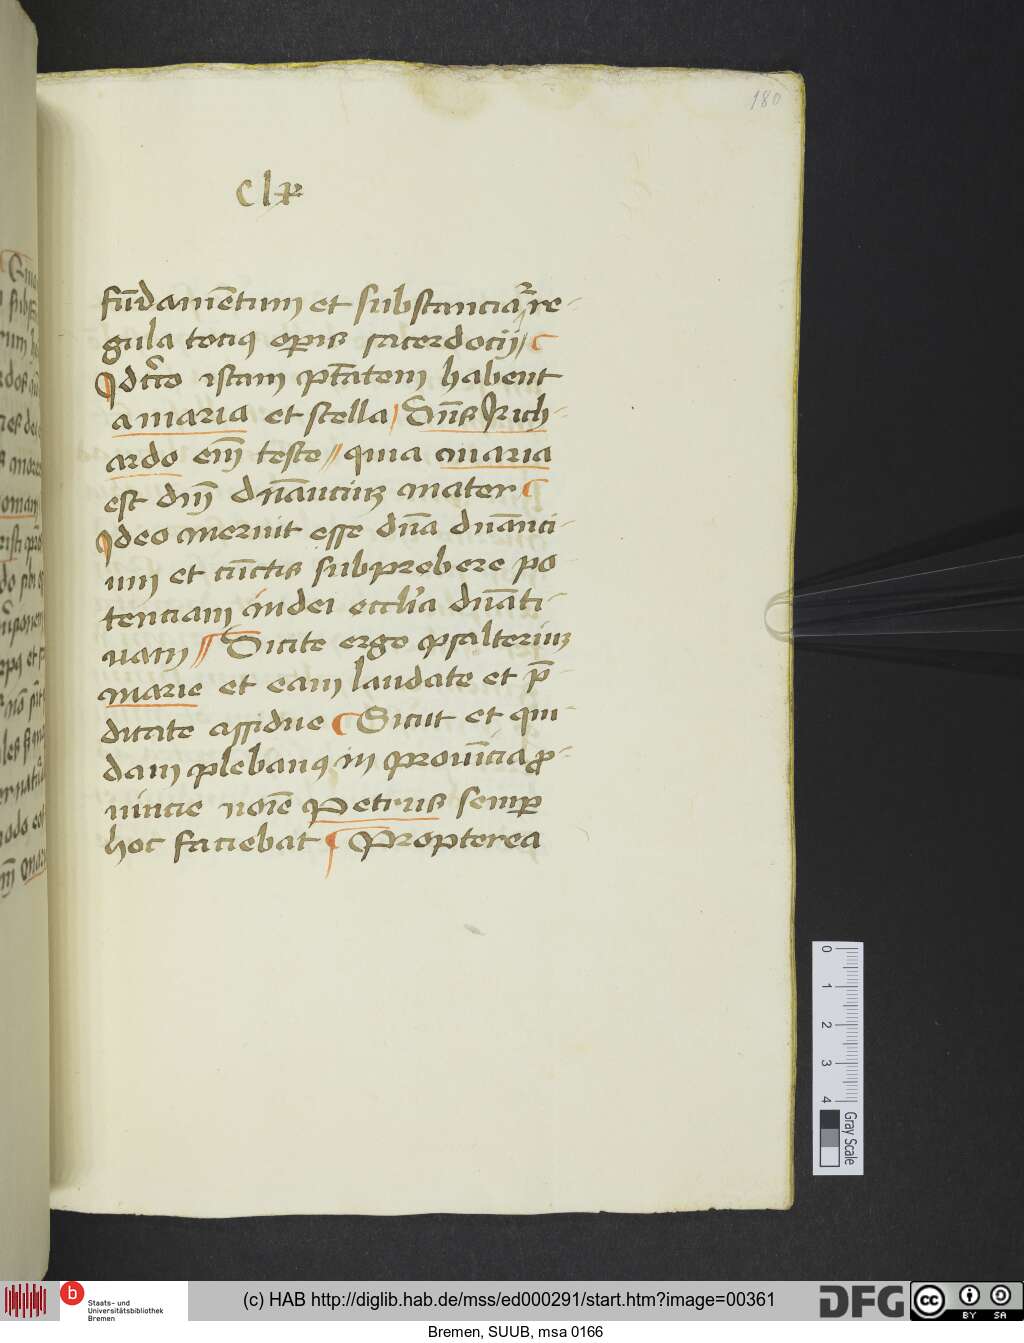 180
fūdamētum et substancia re-
gula tociꝯ oꝑis sacerdocij
istam ptātem habent
a maria et stella
ardo em̄ teste quia maria
est dn̄m dn̄anciū mater
Ideo meruit esse dn̄a dn̄anci-
um et cūctis subprebere po
tenciam in dei eccl'ia dn̄ati-
uam Dicite ergo psalteriū
marie et eam laudate et p̄-
dicate assidue Sicut et qui-
dam plebanꝯ in prouīcia ꝓ-
uincie noīe Petrus semꝑ
hoc faciebat Propterea
0 1 2 3 4
Gray Scale
b
Staats- und
Universitätsbibliothek
Bremen
(c) HAB http://diglib.hab.de/mss/ed000291/start.htm?image=00361
DFG
cc
BY SA
Bremen, SUUB, msa 0166